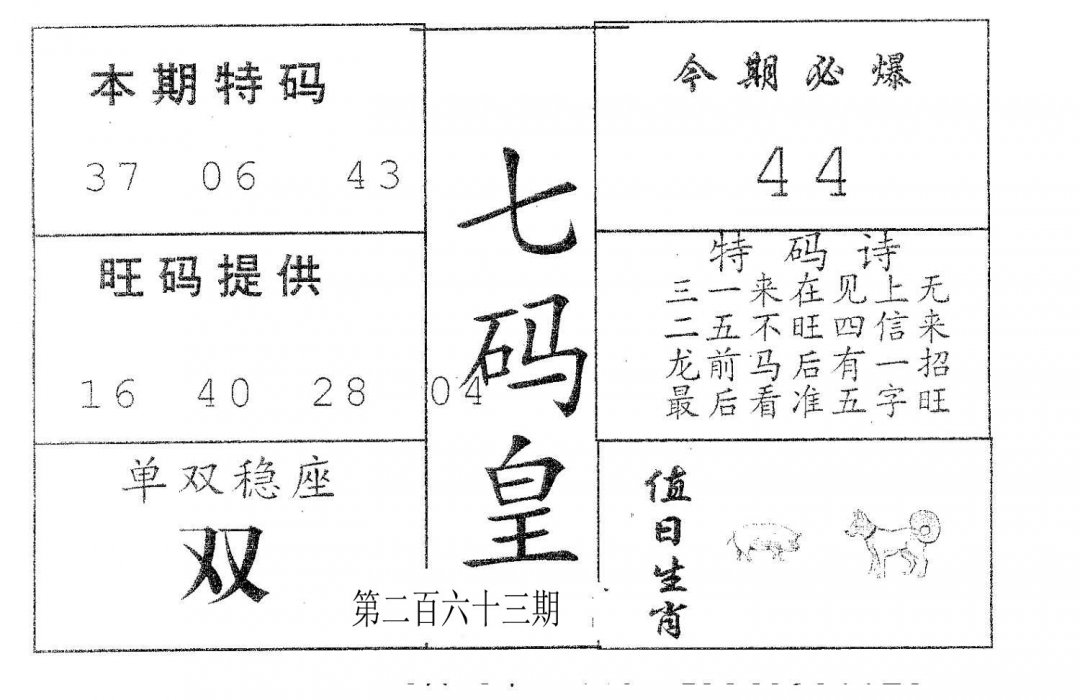 本期特码
37 06 43
旺码提供
16 40 28 04
单双稳座
双
七码皇
第二百六十三期
今期必爆
44
特码诗
三一来在见上无
二五不旺四信来
龙前马后有一招
最后看准五字旺
值日生肖